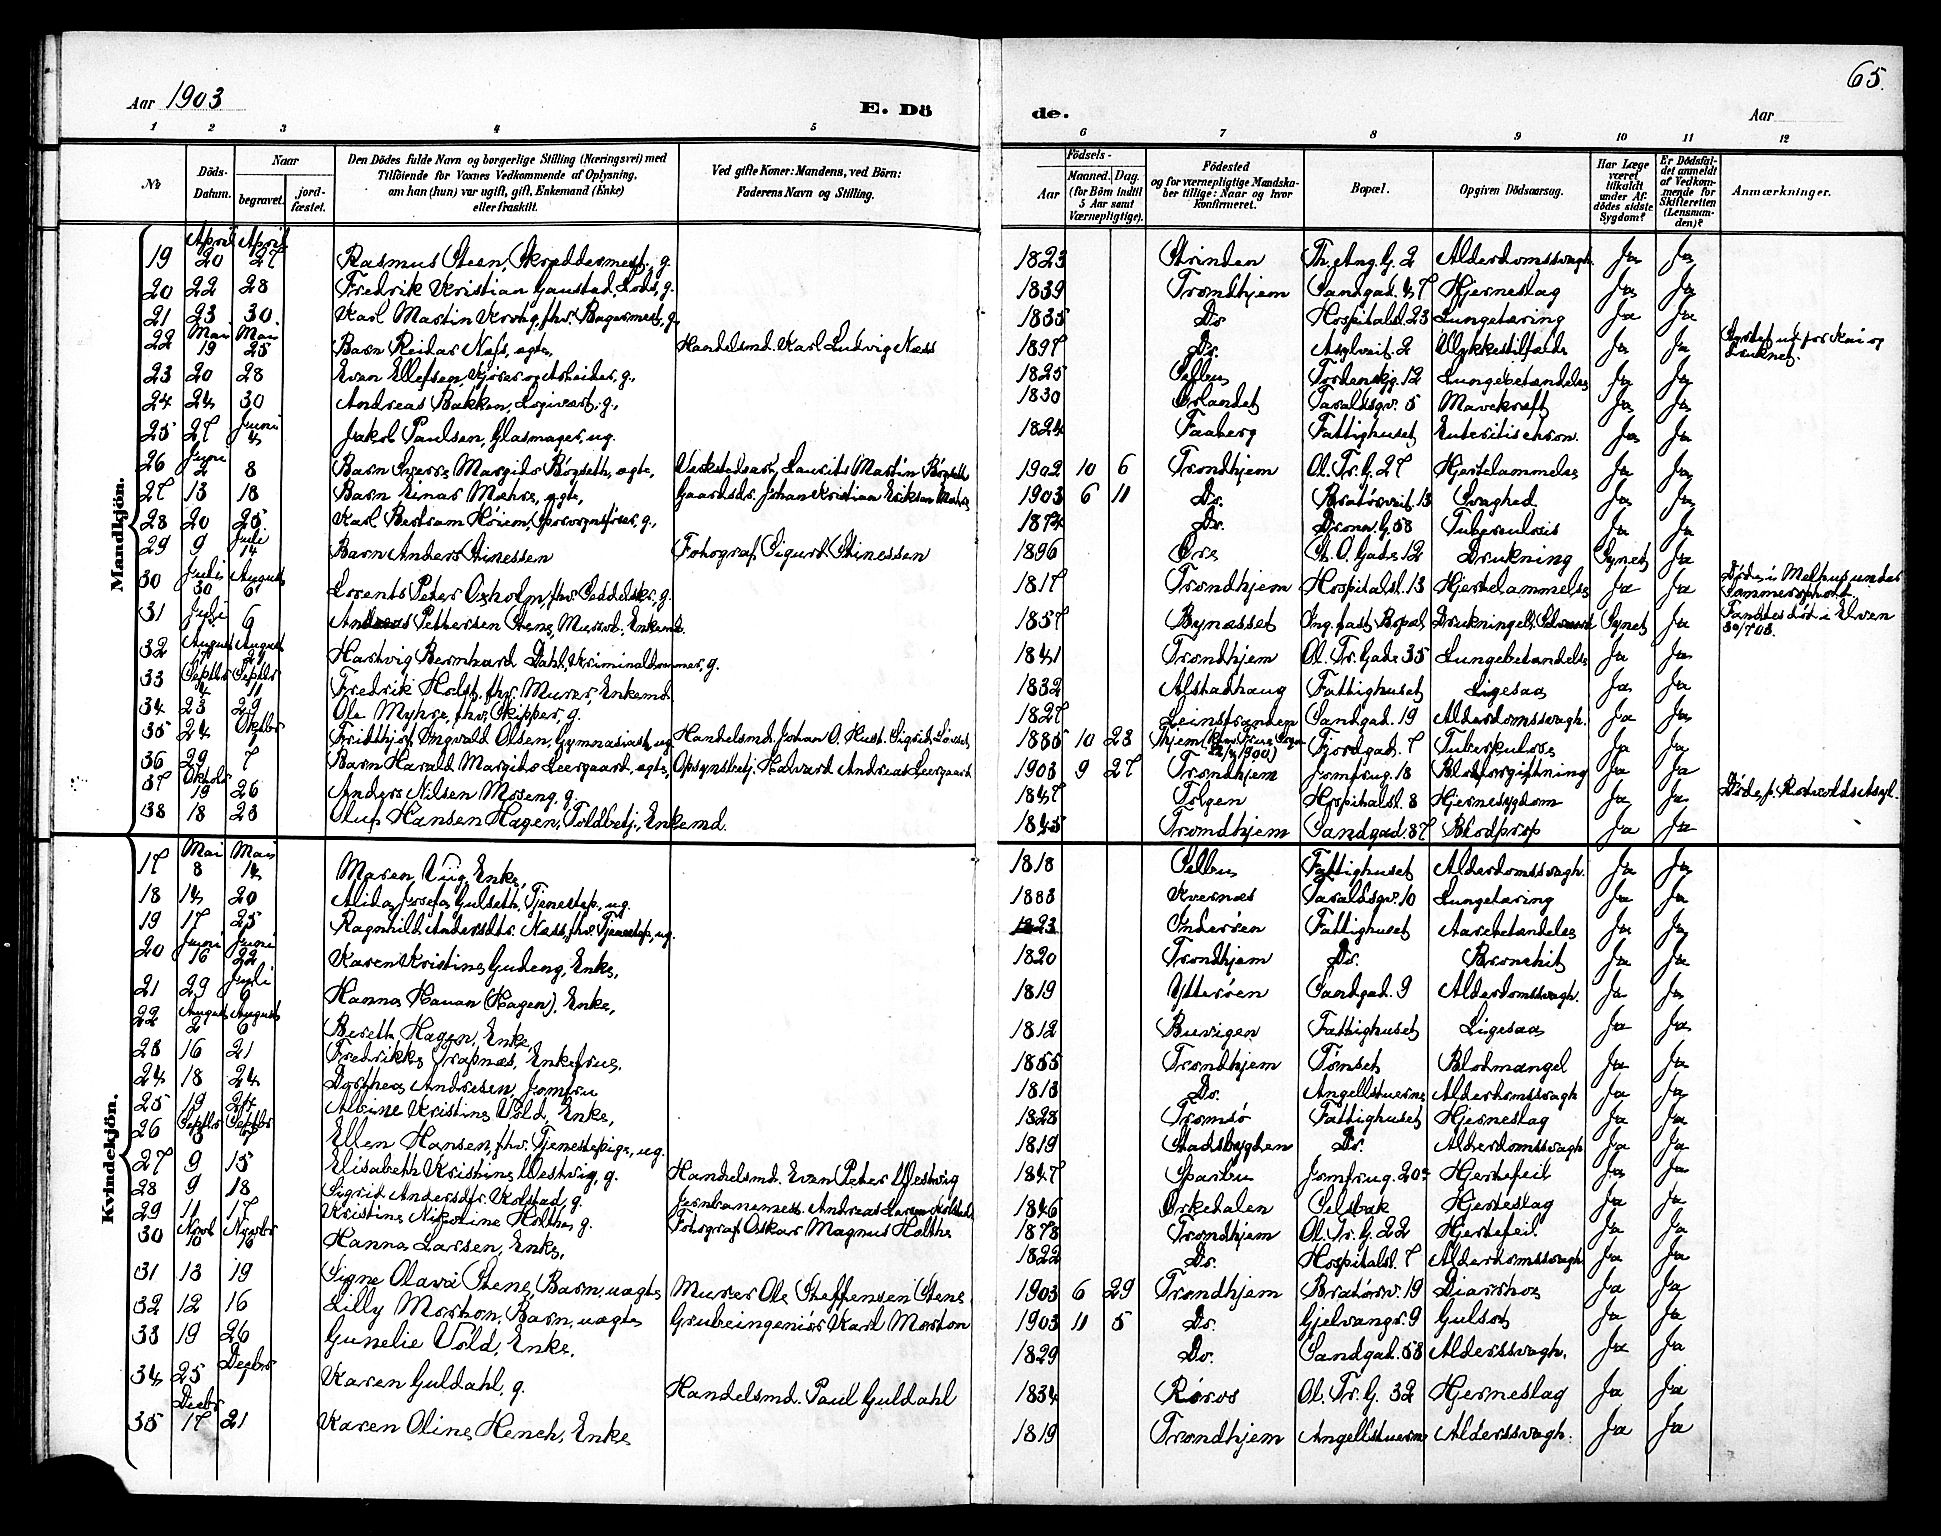 65.
Aar 1903
E. Dö
de.
Aar
1 2 3 4 5 6 7 8 9 10 11 12
№ Döds-Datum. Naar begravet. jord-fæstet. Den Dödes fulde Navn og borgerlige Stilling (Næringsvei) med Tilföiende for Voxnes Vedkommende af Oplysning, om han (hun) var ugift, gift, Enkemand (Enke) eller fraskilt. Ved gifte Koner: Mandens, ved Börn: Faderens Navn og Stilling. Födsels- Aar Maaned. Dag. (for Börn indtil 5 Aar samt Værnepligtige). Födested og for værnepligtige Mandskaber tillige: Naar og hvor konfirmeret. Bopæl. Opgiven Dödsaarsag. Har Læge været tilkaldt under Afdödes sidste Sygdom? Er Dödsfaldet anmeldt af Vedkommende for Skifteretten (Lensmanden)? Anmærkninger.
Mandkjön.
19 April 20 April 27 Rasmus Steen, Skræddermest., g. 1823 Strinden Th. Ang. G. 2 Alderdomssvagh. Ja Ja
20 22 28 Fredrik Kristian Gaustad, Lods, g. 1839 Trondhjem Sandgad. 47 Hjerneslag Ja Ja
21 23 30 Karl Martin Krohg, fhv. Bagermest, g. 1835 Do Hospitalsl. 23 Lungetæring Ja Ja
22 Mai 19 Mai 25 Barn Reidar Næss, ægte, Handelsmd. Karl Ludvig Næss 1897 Do. Asylveit. 2 Ulykkestilfælde Ja Ja Styrtet ud for Kai og druknet.
23 20 28 Even Ellefsen, Kjører og Arbeider, g., 1825 Selbu Tordenskj. 12 Lungebetændelse Ja Ja
24 24 30 Andreas Bakken, Logivært, g., 1830 Ørlandet Taraldsgv. 5 Mavekræft Ja Ja
25 27 Juni 4 Jakob Paulsen, Glasmager, ug. 1824 Faaberg Fattighuset Enteritis chron. Ja Ja
26 Juni 2 8 Barn Sverre Margido Bögseth, ægte, Værkstedsarb. Laurits Martin Bögseth 1902 10 6 Trondhjem Ol. Tr. G. 27 Hjertelammelse Ja Ja
27 13 18 Barn Einar Mæhre, ægte, Gaardsdr. Johan Kristian Eriksen Mæhre 1903 6 11 Do. Bratörveit. 13 Svaghed Ja Ja
28 20 25 Karl Bertram Höiem, Sporvognsfører, g., 1874 Do. Dronn. G. 58 Tuberculosis Ja Ja
29 9 Juli 14 Barn Anders Stinessen Fotograf Sigurd Stinessen 1896 Øre St. O. Gade 12 Drukning Synet Ja
30 Juli 30 August 6 Lorents Peter Oxholm, fhv. Seddelskr., g. 1817 Trondhjem Hospitalsl. 13 Hjertelammelse Ja Ja Døde i Melhus under Sommerophold
31 Juli 6 Andreas Pettersen Stene, Mursv., Enkemd. 1857 Bynæsset Ing. fast Bopæl Drukning Synet Ja Fandtes död i Elven 30/7 03.
32 August August Hartvig Bernhard Dahl, Kriminaldommer, g. 1841 Trondhjem Ol. Tr. Gade 35 Lungebetændelse Ja Ja
33 Septbr 4 Septbr 11 Fredrik Holst, fhv. Murer, Enkemd. 1832 Alstadhaug Fattighuset Ligesaa Ja Ja
34 23 29 Ole Myhre, fhv. Skipper, g. 1827 Leinstranden Sandgad. 19 Alderdomssvagh. Ja Ja
35 24 Oktbr Fridthjof Ingvald Olsen, Gymnasiast, ug Handelsmd. Johan O. Hust. Sigrid 1885 10 23 Thjem Fjordgad. 7 Tuberkulose Ja Ja
36 29 7 Barn Harald Margido Leergaard, ægte, Opsynsbetj. Halvard Andreas Leergaard 1903 9 27 Trondhjem Jomfrug. 18 Blodforgiftning Ja Ja
37 Oktobr 19 26 Anders Nilsen Moseng, g. 1847 Tolgen Hospitalsl. 8 Hjernesygdom Ja Ja Døde p. Rotvoldsasyl.
38 18 23 Oluf Hansen Hagen, Toldbetj., Enkemd. 1845 Trondhjem Sandgad. 37 Blodprop Ja Ja
Kvindekjön.
17 Mai 8 Mai 14 Maren Viig, Enke, 1818 Selbu Fattighuset Alderdomssvagh. Ja Ja
18 14 20 Alida Josefa Gulseth, Tjenestep., ug. 1883 Kvernæs Taraldsgv. 10 Lungetæring Ja Ja
19 17 25 Ragnhild Andersdtr. Næss, fhv. Tjenestep., ug. 1823 Inderøen Fattighuset Aarebetændelse Ja Ja
20 Juni 16 Juni 22 Karen Kristine Gudeng, Enke, 1820 Trondhjem Do. Bronchit Ja Ja
21 29 Juli 6 Hanna Hauan (Hagen), Enke, 1819 Ytterøen Sandgad. 9 Alderdomssvagh. Ja Ja
22 August 2 August 6 Bereth Hagen, Enke, 1812 Buvigen Fattighuset Ligesaa Ja Ja
23 16 21 Fredrikke Trapnæs, Enkefrue, 1855 Trondhjem Tönset Blodmangel Ja Ja
24 18 24 Dorthea Andresen, Jomfru 1813 Do. Angellstuerne Alderdomssvagh Ja Ja
25 19 24 Albine Kristine Vold, Enke, 1828 Tromsö Fattighuset Hjerneslag Ja Ja
26 Septbr Septbr Ellen Hansen, fhv. Tjenestepige, ug. 1819 Stadsbygden Do. Alderdomssvagh Ja Ja
27 9 15 Elisabeth Kristine Westvig, g. Handelsmd. Even Peter Westvig 1847 Sparbu Jomfrug. 20 Hjertefeil Ja Ja
28 9 18 Sigrid Andersdtr. Kolstad, g. Jernbanemest. Andreas Larsen Kolstad 1846 Ørkedalen Selsbak Hjerteslag Ja Ja
29 11 17 Kristine Nikoline Holthe, g. Fotograf Oskar Magnus Holthe 1878 Trondhjem Ol. Tr. G. 22 Hjertefeil Ja Ja
30 Novb 10 Novbr 16 Hanna Larsen, Enke, 1822 Do. Hospitalsl. 7 Alderdomssvagh Ja Ja
31 13 19 Signe Olava Stene, Barn, uægte Murer Ole Steffensen Stene 1903 6 29 Trondhjem Bratörv. 19 Diarrhoe Ja Ja
32 12 16 Lilly Morton, Barn, uægte Grubeingeniör Karl Morton 1903 11 5 Do. Gjelvangv. 9 Gulsot Ja Ja
33 19 26 Gunelie Vold, Enke. 1829 Do. Sandgad. 58 Alderssvagh. Ja Ja
34 25 Decbr Karen Guldahl, g. Handelsmd. Paul Guldahl 1834 Røros Ol. Tr. G. 32 Hjerneslag Ja Ja
35 Decbr 17 21 Karen Oline Hench, Enke 1819 Trondhjem Angellstuerne Alderssvagh. Ja Ja